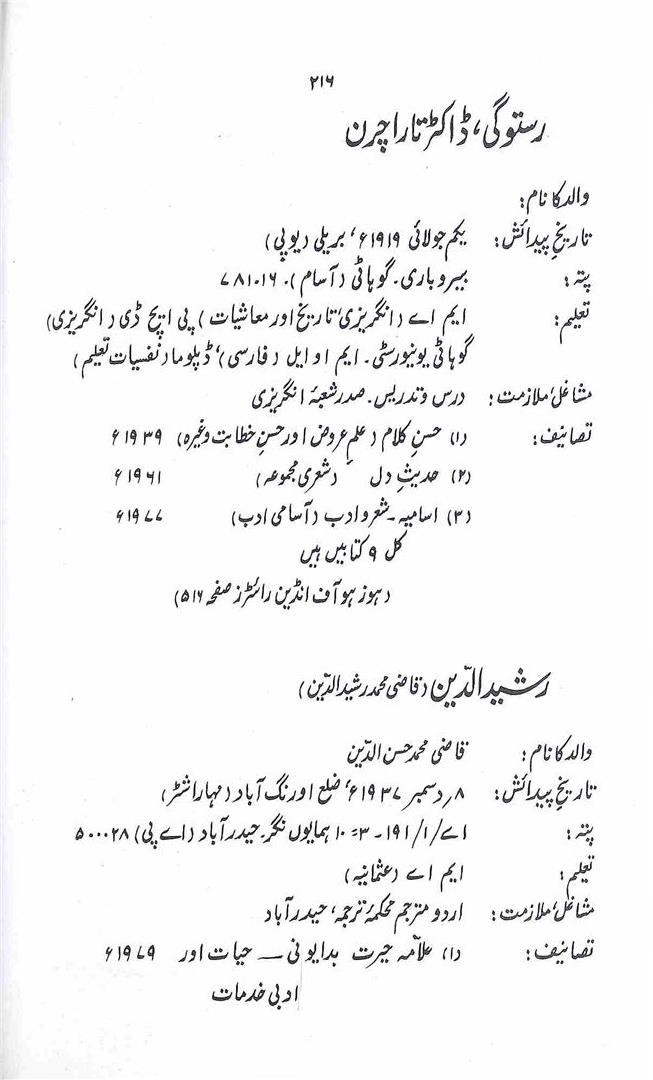 ۲۱۶
رستوگی، ڈاکٹر تارا چرن
والد کا نام:
تاریخِ پیدائش: یکم جولائی ۱۹۱۹ء، بریلی (یوپی)
پتہ: بیروباری۔ گوہاٹی (آسام)۔ ۷۸۱۰۱۶
تعلیم: ایم اے (انگریزی، تاریخ اور معاشیات) پی ایچ ڈی (انگریزی)
گوہاٹی یونیورسٹی۔ ایم او ایل (فارسی)، ڈپلوما (نفسیات تعلیم)
مشاغل، ملازمت: درس و تدریس۔ صدر شعبۂ انگریزی
تصانیف: (۱) حسنِ کلام (علمِ عروض اور حسنِ خطابت وغیرہ) ۱۹۳۹ء
(۲) حدیثِ دل (شعری مجموعہ) ۱۹۶۱ء
(۳) اسامیہ۔ شعر و ادب (آسامی ادب) ۱۹۷۷ء
کل ۹ کتابیں ہیں
(ہوز ہو آف انڈین رائٹرز صفحہ ۵۱۶)
رشید الدّین (قاضی محمد رشید الدّین)
والد کا نام: قاضی محمد حسن الدّین
تاریخِ پیدائش: ۸؍ دسمبر ۱۹۳۷ء، ضلع اورنگ آباد (مہاراشٹر)
پتہ: اے/۱/۱۹۱ - ۳ = ۱۰ ہمایوں نگر۔ حیدرآباد (اے پی) ۵۰۰۰۲۸
تعلیم: ایم اے (عثمانیہ)
مشاغل، ملازمت: اردو مترجم محکمۂ ترجمہ، حیدرآباد
تصانیف: (۱) علاّمہ حیرت بدایونی — حیات اور ۱۹۷۹ء
ادبی خدمات